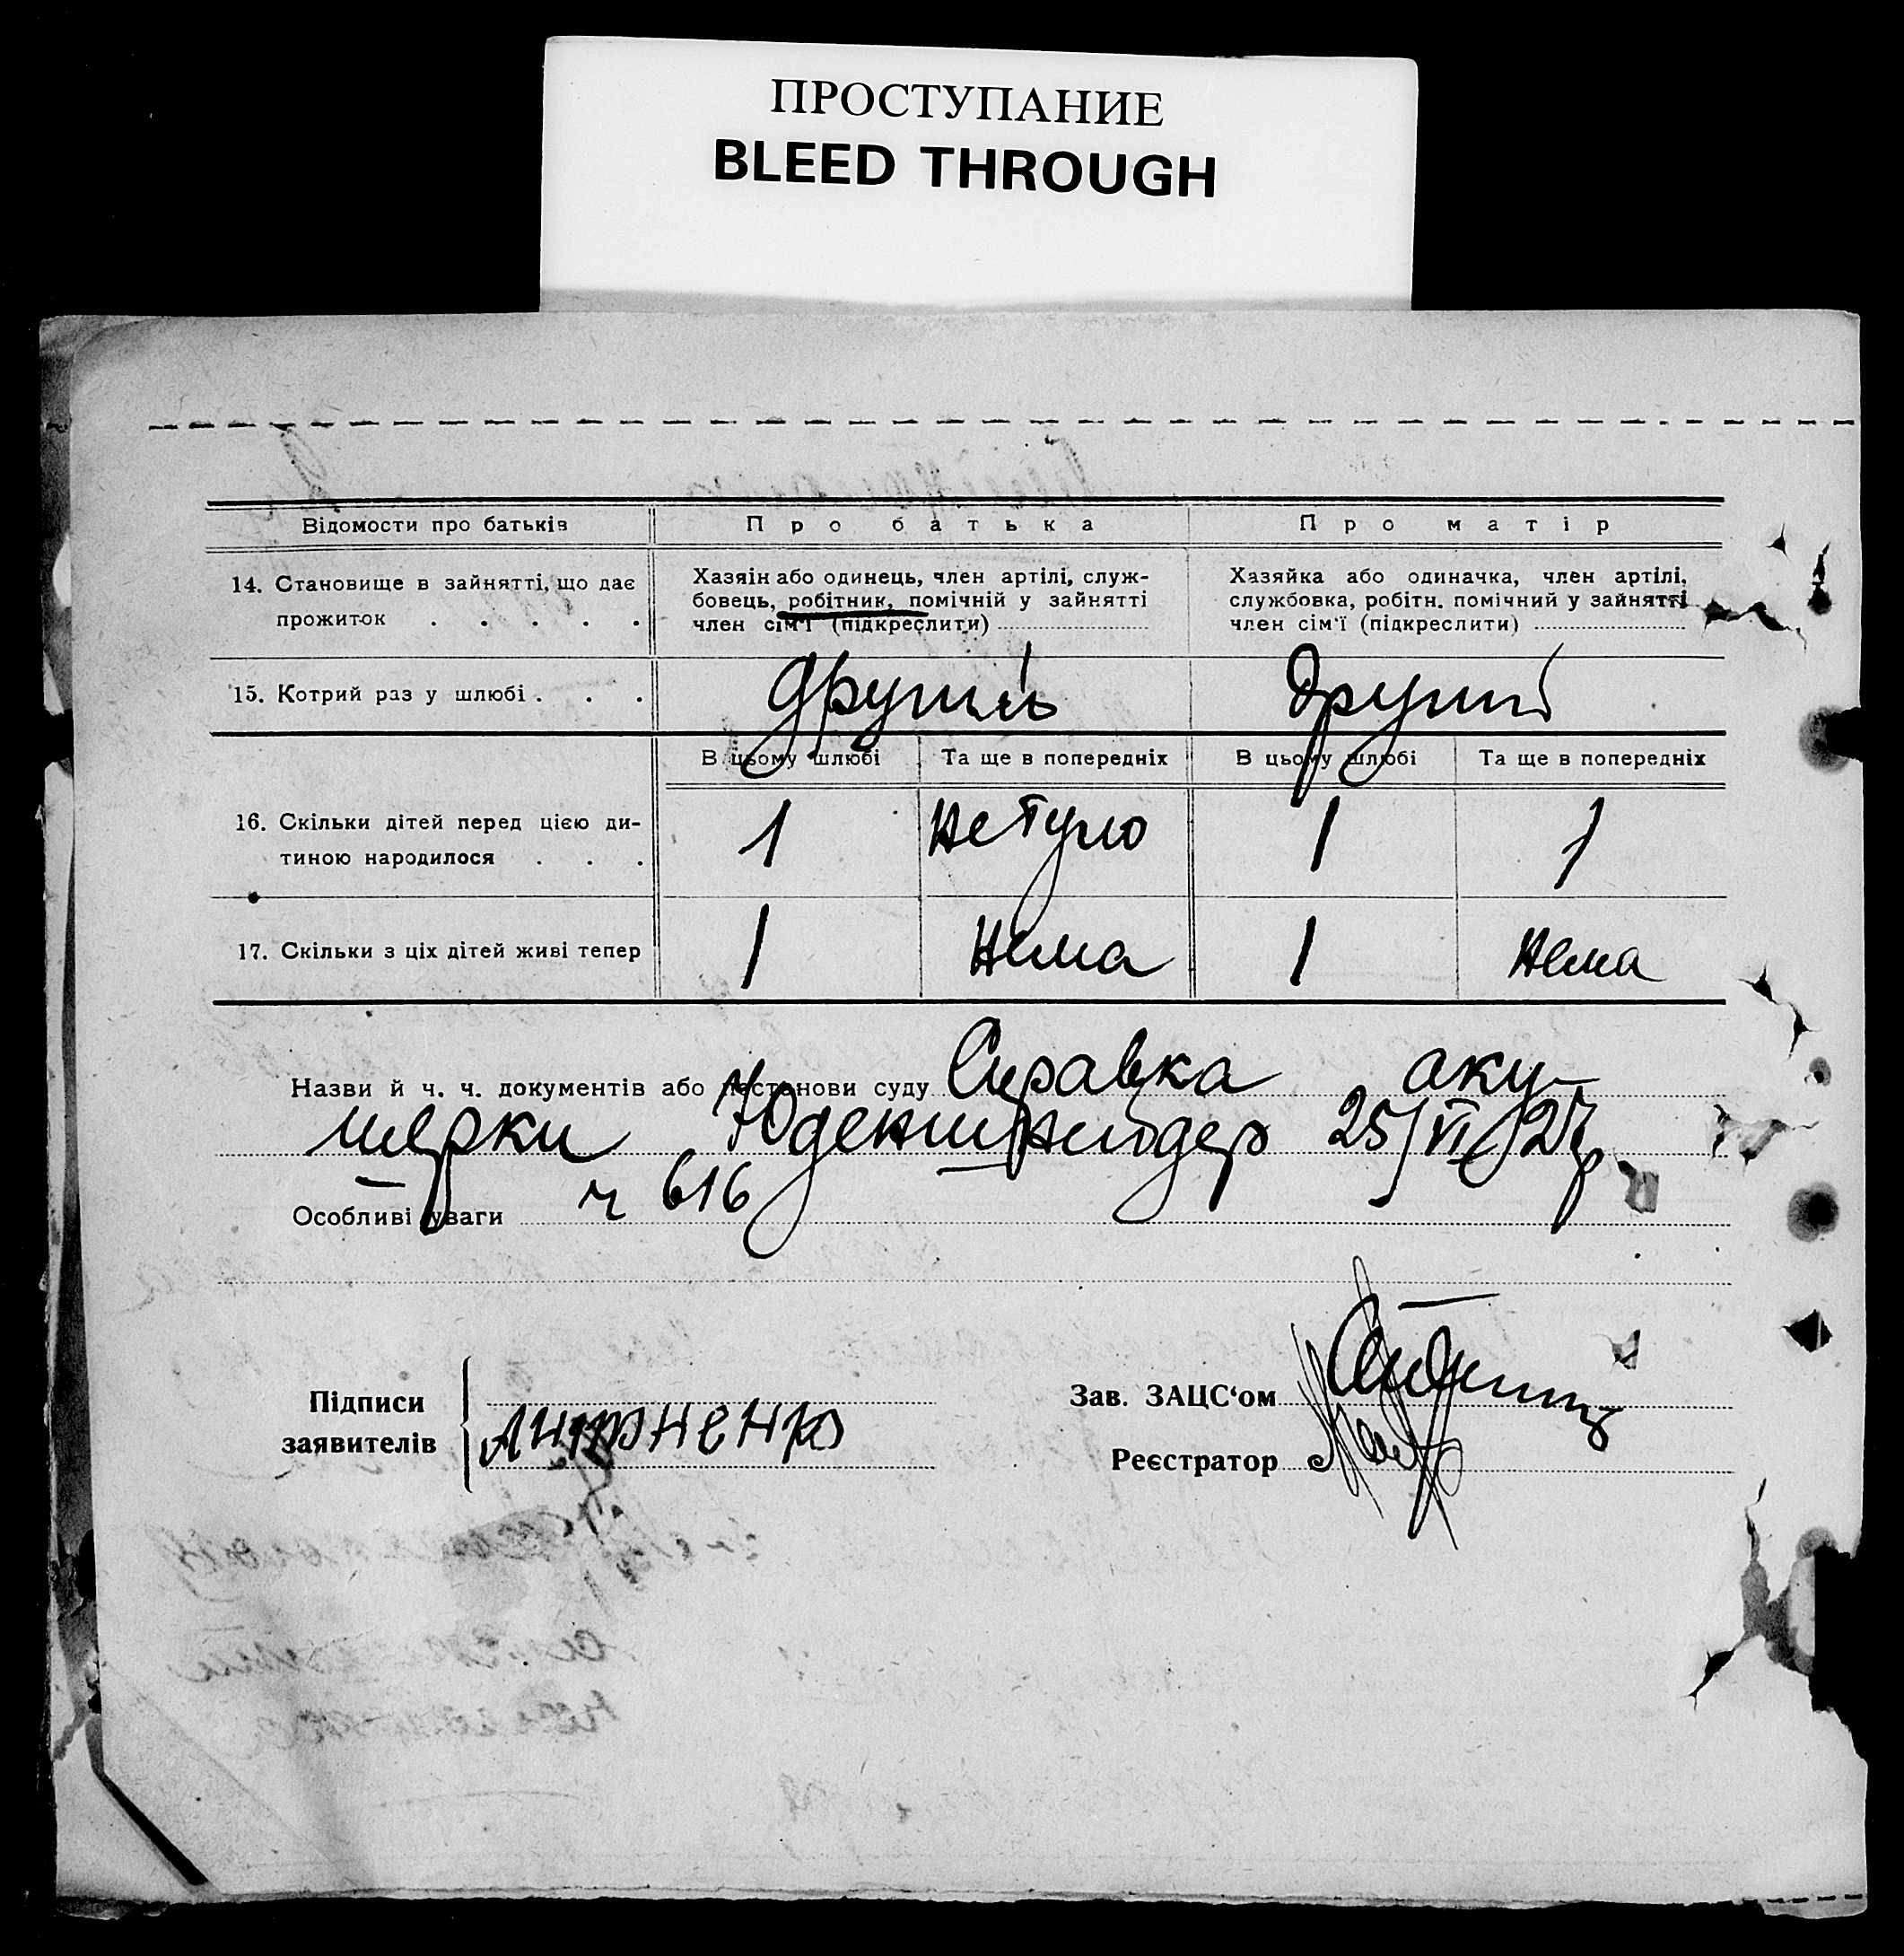 ПРОСТУПАНИЕ
BLEED THROUGH
Відомости про батьків
Про батька
Про матір
14. Становище в зайнятті, що дає
прожиток . . . . .
Хазяін або одинець, член артілі, служ-
бовець, робітник, помічній у зайнятті
член сім'ї (підкреслити)
Хазяйка або одиначка, член артілі,
службовка, робітн. помічний у зайнятті
член сім'ї (підкреслити)
15. Котрий раз у шлюбі . . .
другий
другий
В цьому шлюбі
Та ще в попередніх
В цьому шлюбі
Та ще в попередніх
16. Скільки дітей перед цією ди-
тиною народилося . . .
1
1
1
17. Скільки з ціх дітей живі тепер
1
нема
1
нема
Назви й ч. ч. документів або постанови суду Справка аку-
шерки 25/VI 27р.
Особливі уваги ч 616
Підписи
заявителів
Зав. ЗАЦС‘ом
Реєстратор